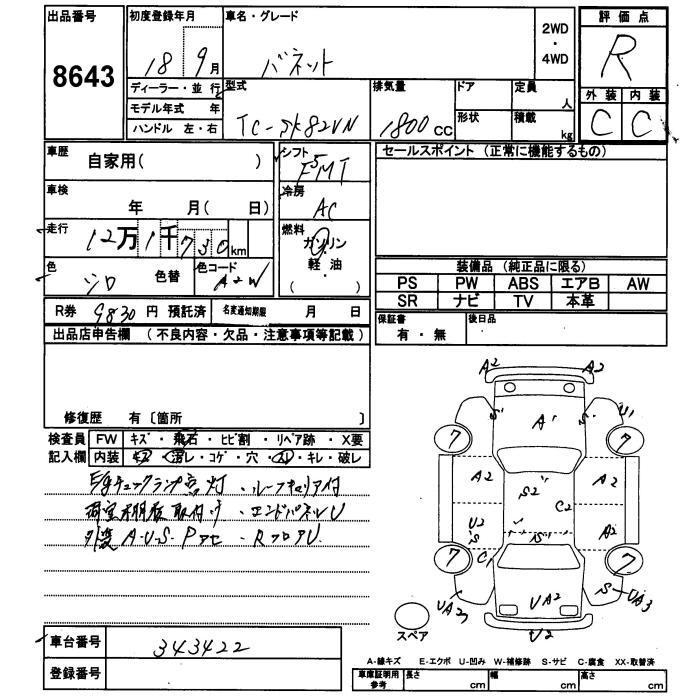 出品番号 初度登録年月 車名・グレード 2WD ・ 4WD 評価点
8643 18年 9月 バネット R
ディーラー・並行 型式 排気量 ドア 定員 人 外装 内装
モデル年式 年 TC- 82VN 1800 CC 形状 積載 kg C C
ハンドル 左・右
車歴 自家用( ) シフト F5MT セールスポイント (正常に機能するもの)
車検 年 月( 日) 冷房 AC
走行 12万1千730km 燃料 ガソリン
軽・油
( )
色 シロ 色替 色コード A2W 装備品 (純正品に限る)
PS PW ABS エアB AW
SR ナビ TV 本革
R券 9830円 預託済 名変通知期限 月 日 保証書 有・無 後日品
出品店申告欄 (不良内容・欠品・注意事項等記載)
修復歴 有〔箇所 〕
検査員 FW キズ・飛石・ヒビ割・リペア跡・X要
記入欄 内装 キズ・汚レ・コゲ・穴・スレ・キレ・破レ
E/gチェックランプ点灯・ルーフキャリア付
取付・エンドパネルU
外装A.U.S.Pアセ・RフロアU
A2 A2
S A1 S U1
7 7
A2 S2 A2
C2
U2 S S A2
7 C1 7
UA2 UA3 S
U2
スペア
車台番号 343422
登録番号
A-線キズ E-エクボ U-凹み W-補修跡 S-サビ C-腐食 XX-取替済
車庫証明用参考 長さ cm 幅 cm 高さ cm